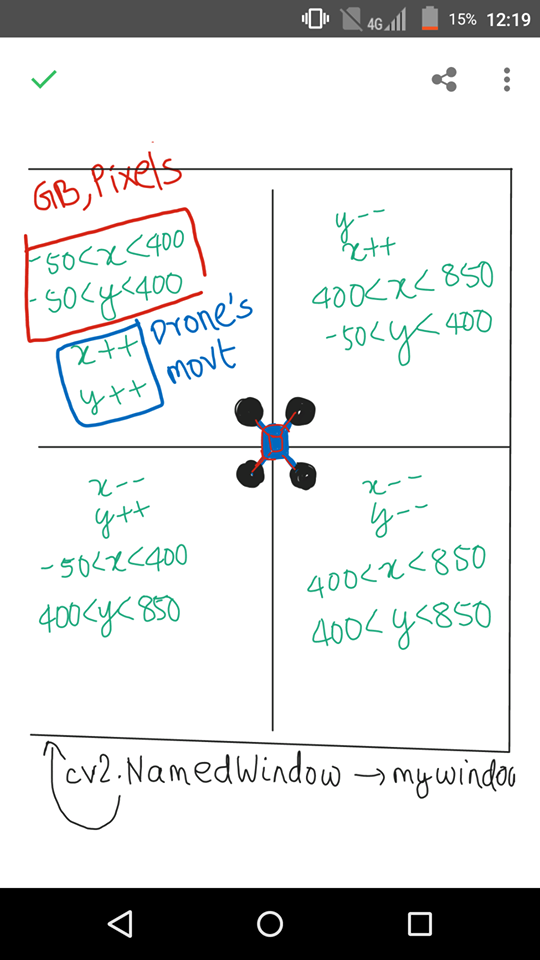 4G 15% 12:19
GB, Pixels
-50<x<400
-50<y<400
x++
y++
Drone's
movt
y--
x++
400<x<850
-50<y<400
x--
y++
-50<x<400
400<y<850
x--
y--
400<x<850
400<y<850
cv2.NamedWindow → mywindow